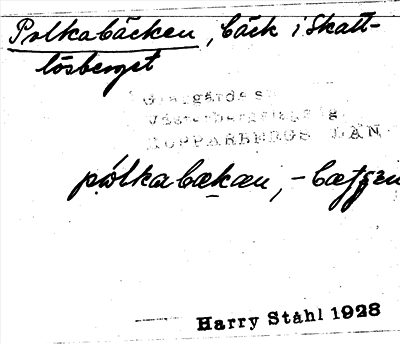 Polkabäcken, bäck i Skatt-
lösberget
Grangärde sn
Västerbergslags
KOPPARBERGS LÄN
pólkabækæn, -bæʃʃen
Harry Ståhl 1928